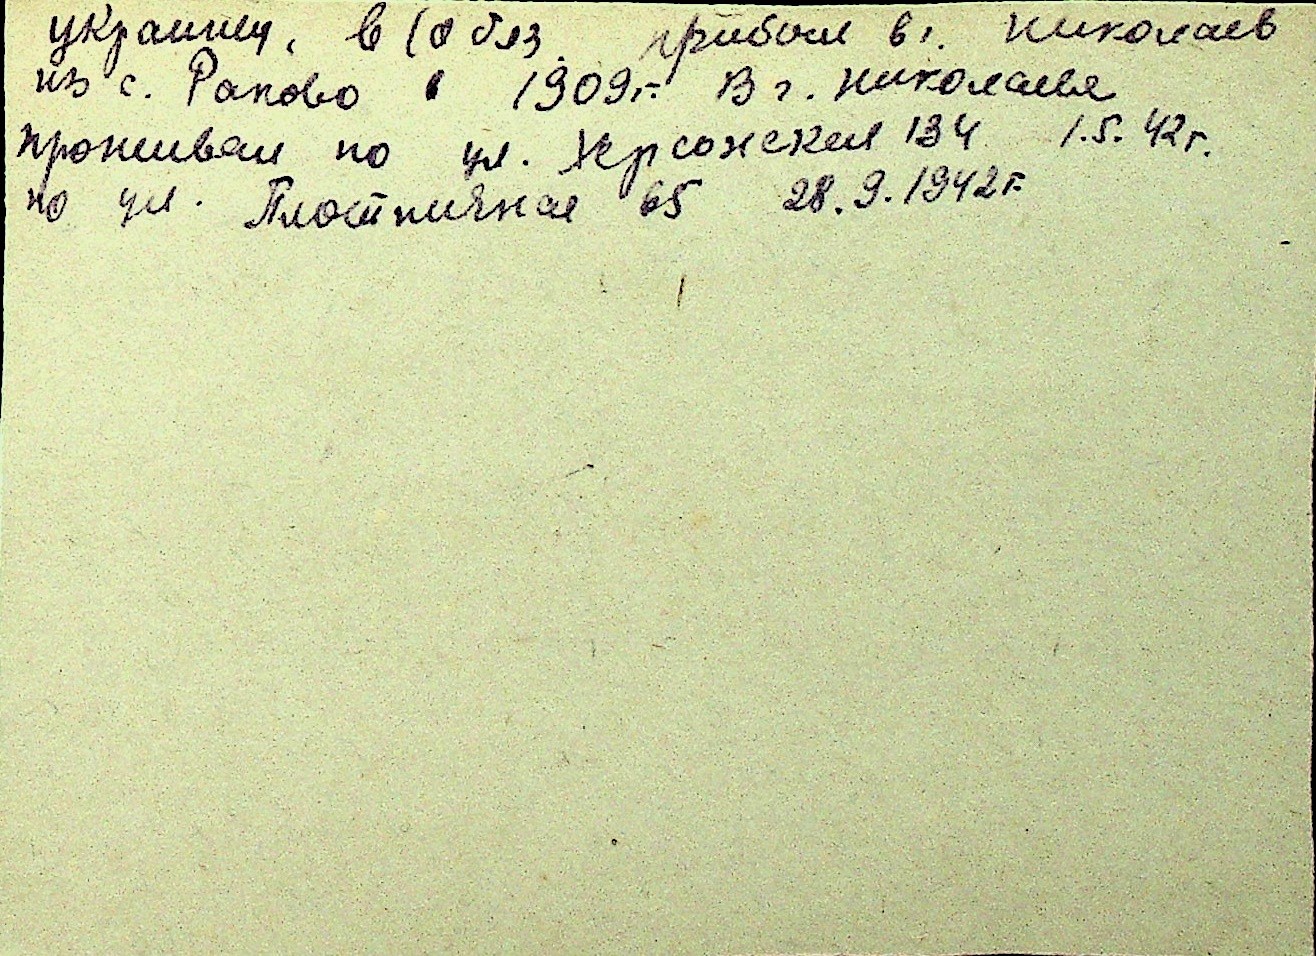 украинец, в/обяз. прибыл в г. Николаев
из с. Раково в 1909г. В г. Николаеве
проживал по ул. Херсонская 134 1.5.42г.
по ул. Плотничная 65 28.9.1942г.